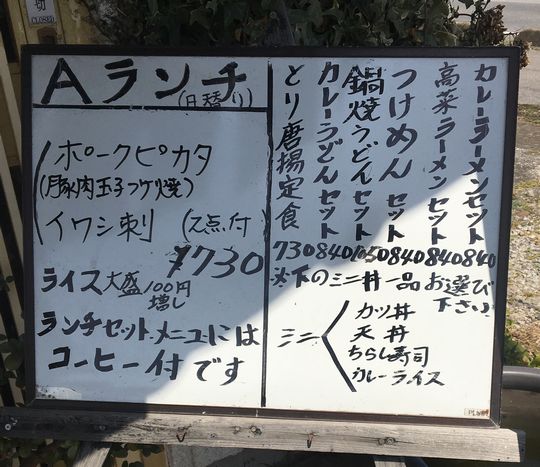 切
CLOSED
Aランチ
(日替り)
ポークピカタ
(豚肉玉子つけ焼)
イワシ刺 (2点付)
¥730
ライス大盛100円
増し
ランチセットメニューには
コーヒー付です
カレーラーメンセット840
高菜ラーメンセット840
つけめんセット840
鍋焼うどんセット1050
カレーうどんセット840
とり唐揚定食730
※下のミニ丼一品お選び
下さい
ミニ
カツ丼
天丼
ちらし寿司
カレーライス